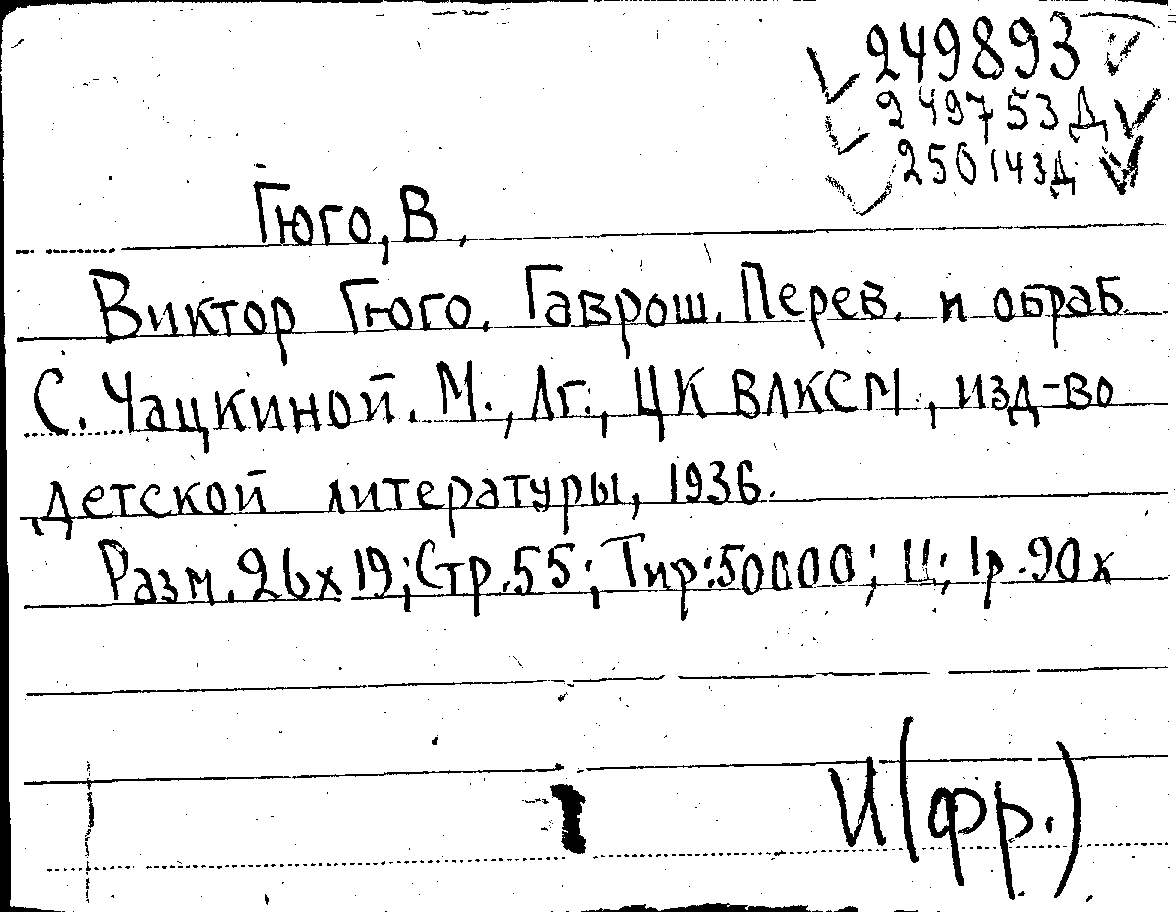 249893
249753Д
250143Д
Гюго, В.
Виктор Гюго. Гаврош. Перев. и обраб.
С. Чацкиной. М., Лг., ЦК ВЛКСМ, изд-во
детской литературы, 1936.
Разм. 26х19; Стр. 55; Тир: 50000; Ц: 1р. 90к
И(фр.)